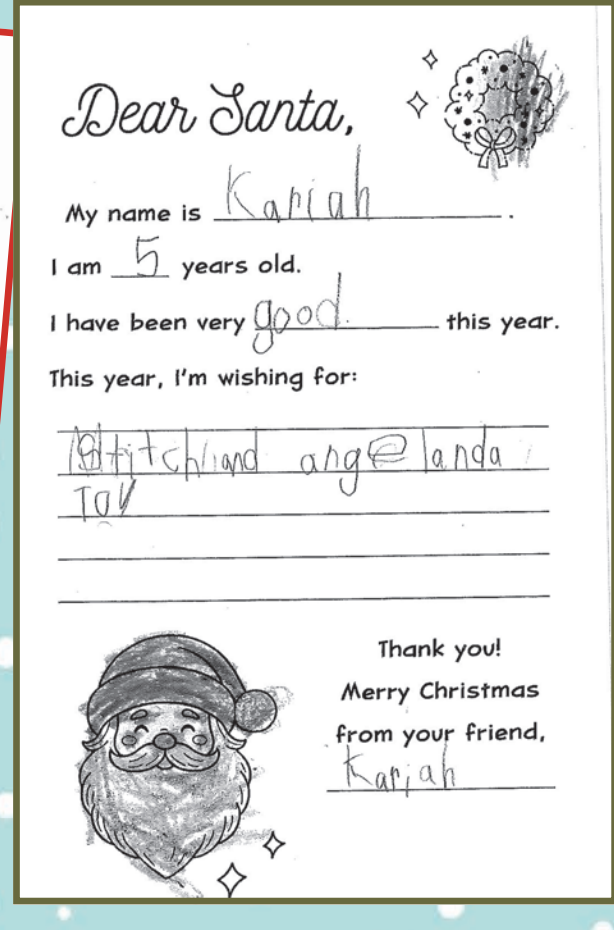 Dear Santa,
My name is Kariah .
I am 5 years old.
I have been very good. this year.
This year, I'm wishing for:
Stitch and angelanda
Toy
Thank you!
Merry Christmas
from your friend,
Kariah